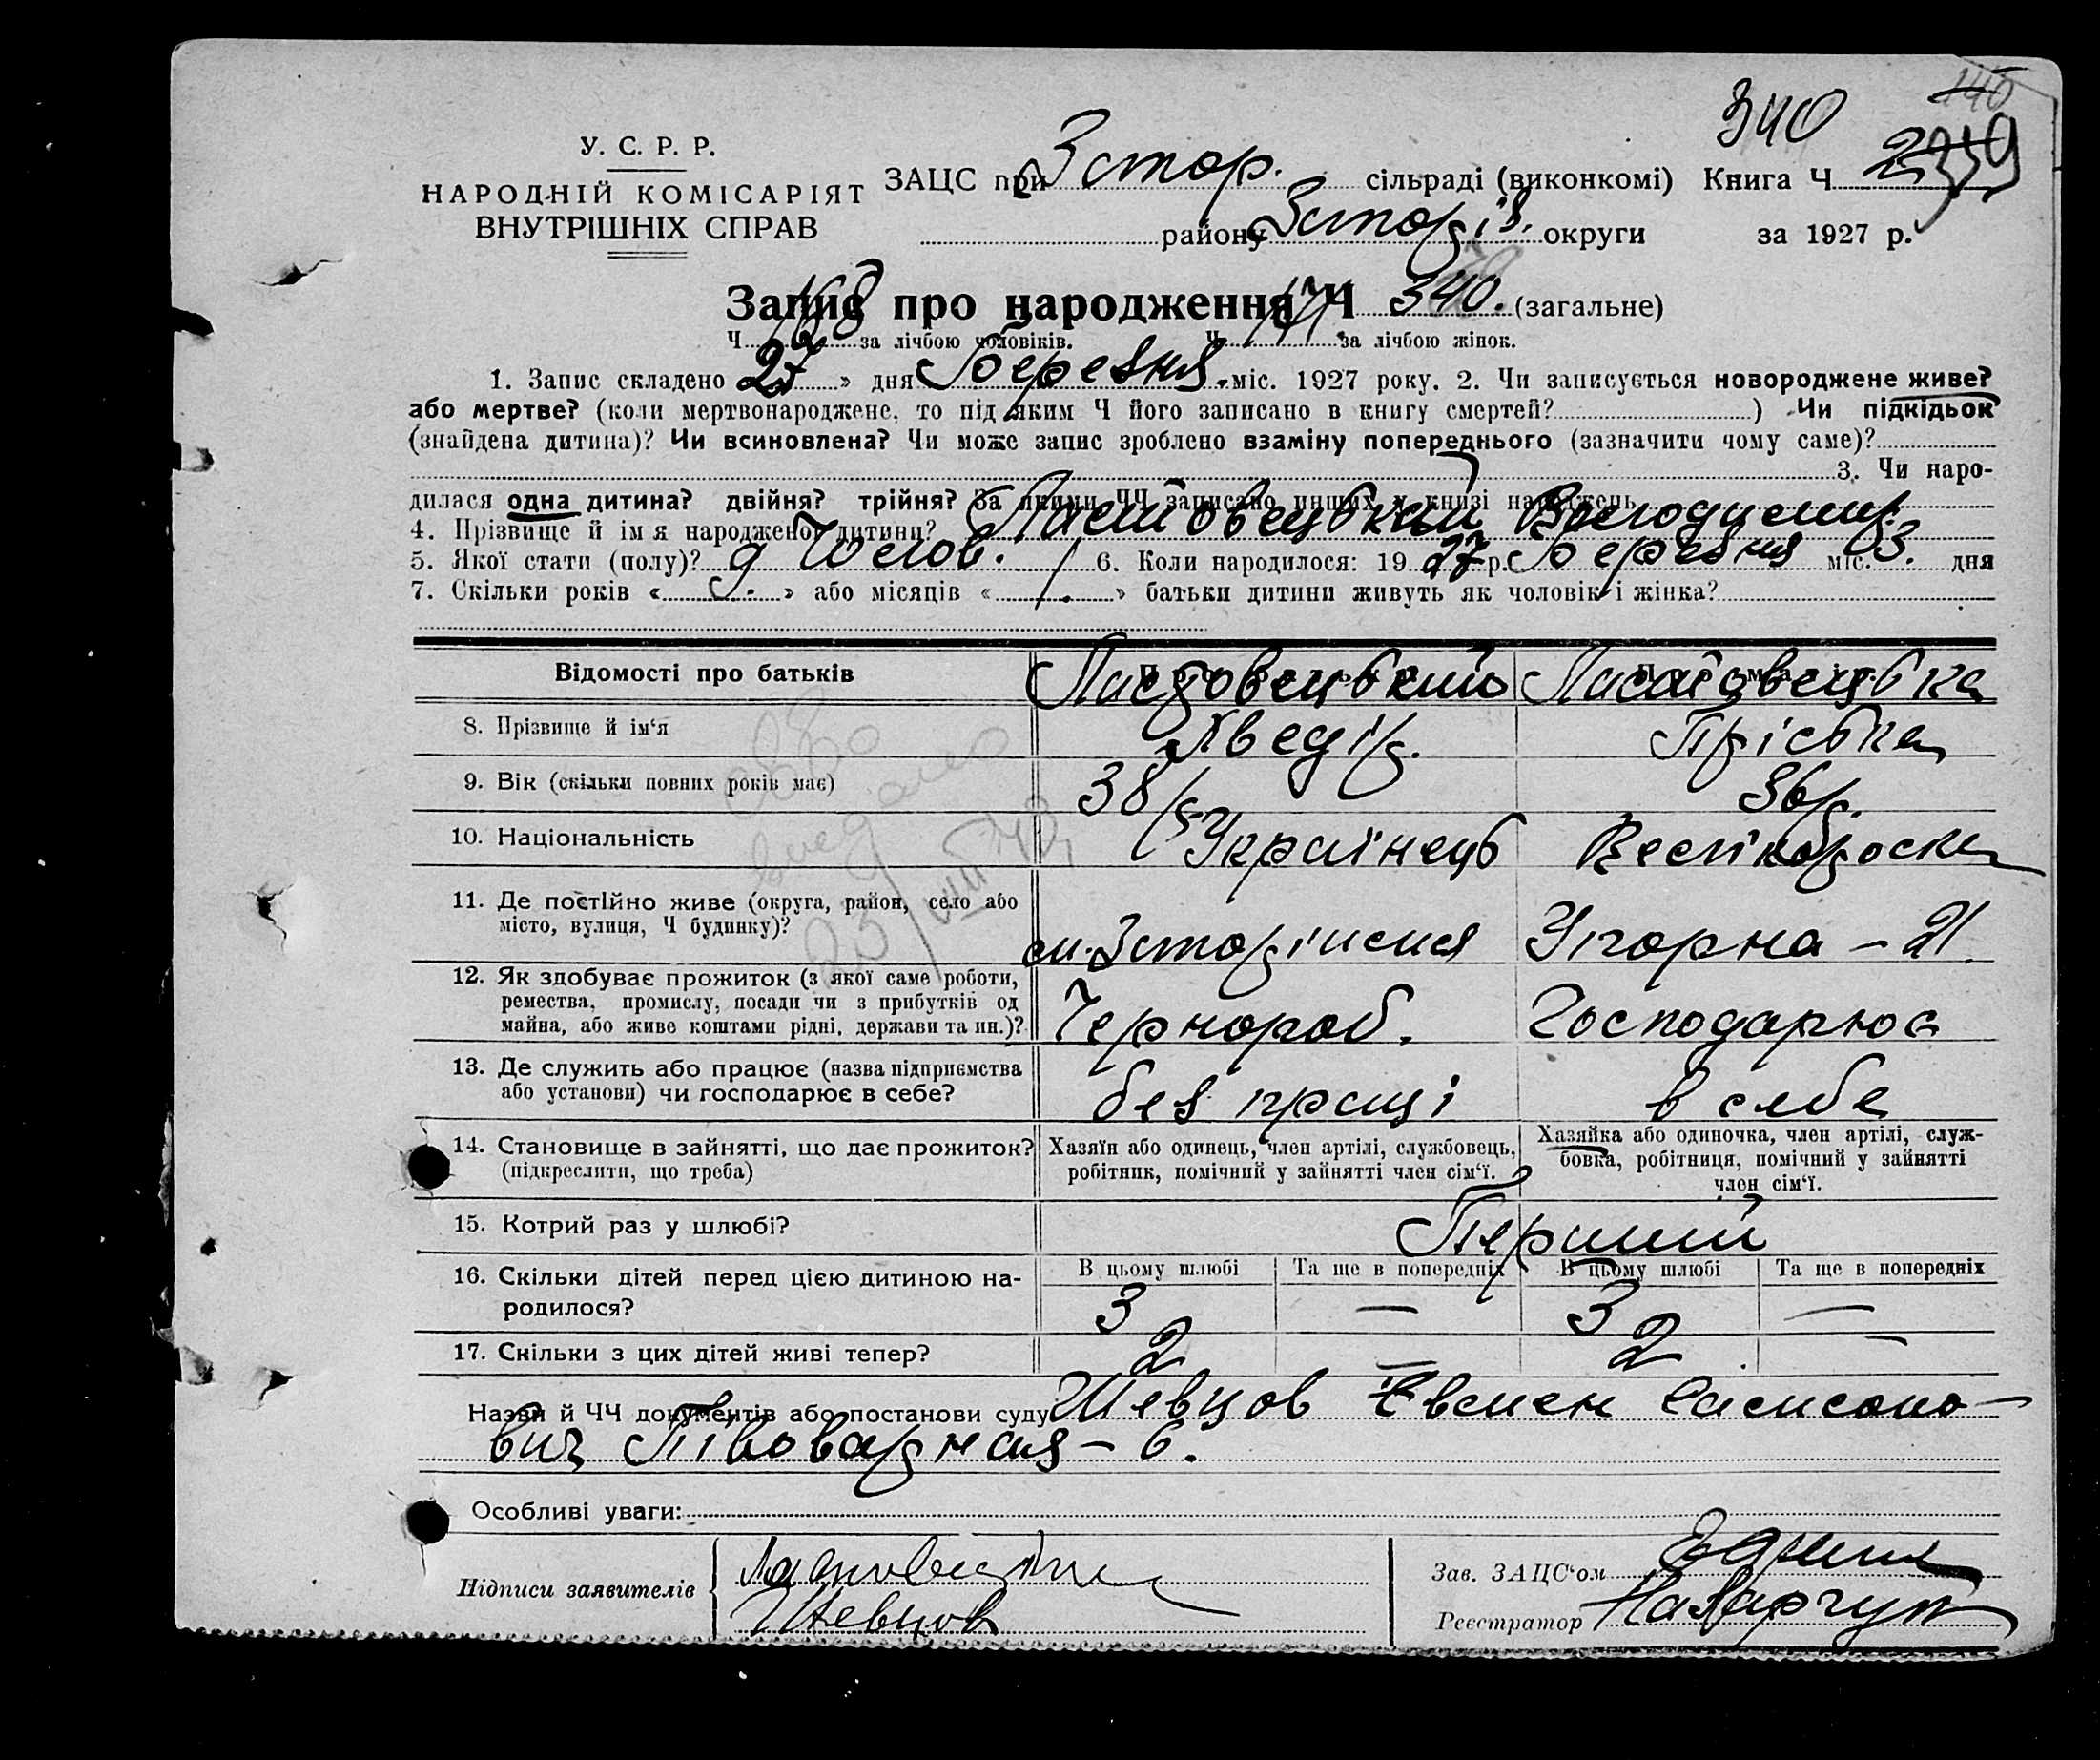 340
У. С. Р. Р.
НАРОДНІЙ КОМІСАРІЯТ
ВНУТРІШНІХ СПРАВ
ЗАЦС при Зстор. сільраді (виконкомі) Книга Ч
району Зсторів. округи за 1927 р.
Запис про народження Ч 340. (загальне)
Ч 168 за лічбою чоловіків. Ч за лічбою жінок.
1. Запис складено 27 » дня Березня міс. 1927 року. 2. Чи записується новороджене живе?
або мертве? (коли мертвонароджене, то під яким Ч його записано в книгу смертей? ) Чи підкідьок
(знайдена дитина)? Чи всиновлена? Чи може запис зроблено взаміну попереднього (зазначити чому саме)?
3. Чи наро-
дилася одна дитина? двійня? трійня? За якими ЧЧ записано инших у книзі народжень
4. Прізвище й ім я народженої дитини? Ластовецький Володимир
5. Якої стати (полу)? Чолов. 6. Коли народилося: 19 27 р. Березня міс. 3. дня
7. Скільки років « » або місяців « » батьки дитини живуть як чоловік і жінка?
Відомості про батьків Ластовецький Ластовецька
8. Прізвище й ім‘я Хведір. Пріська
9. Вік (скільки повних років має) 38 р. 36 р.
10. Національність Українець Велікороска
11. Де постійно живе (округа, район, село або
місто, вулиця, Ч будинку)? Нагорна – 21.
12. Як здобуває прожиток (з якої саме роботи,
ремества, промислу, посади чи з прибутків од
майна, або живе коштами рідні, держави та ин.)? Чернороб. Господарює
13. Де служить або працює (назва підприємства
або установи) чи господарює в себе? без праці в себе
14. Становище в зайнятті, що дає прожиток?
(підкреслити, що треба)
Хазяїн або одинець, член артілі, службовець,
робітник, помічний у зайнятті член сім‘ї.
Хазяйка або одиночка, член артілі, служ-
бовка, робітниця, помічний у зайнятті
член сім‘ї.
15. Котрий раз у шлюбі? Перший
16. Скільки дітей перед цією дитиною на-
родилося?
В цьому шлюбі Та ще в попередніх В цьому шлюбі Та ще в попередніх
3 — 3 —
17. Скільки з цих дітей живі тепер? 2 — 2 —
Назви й ЧЧ документів або постанови суду Шевцов Евмен Самсоно-
вич Півоварная – 6.
Особливі уваги:
Підписи заявителів
Шевцов
Зав. ЗАЦС‘ом
Реєстратор Назарчук